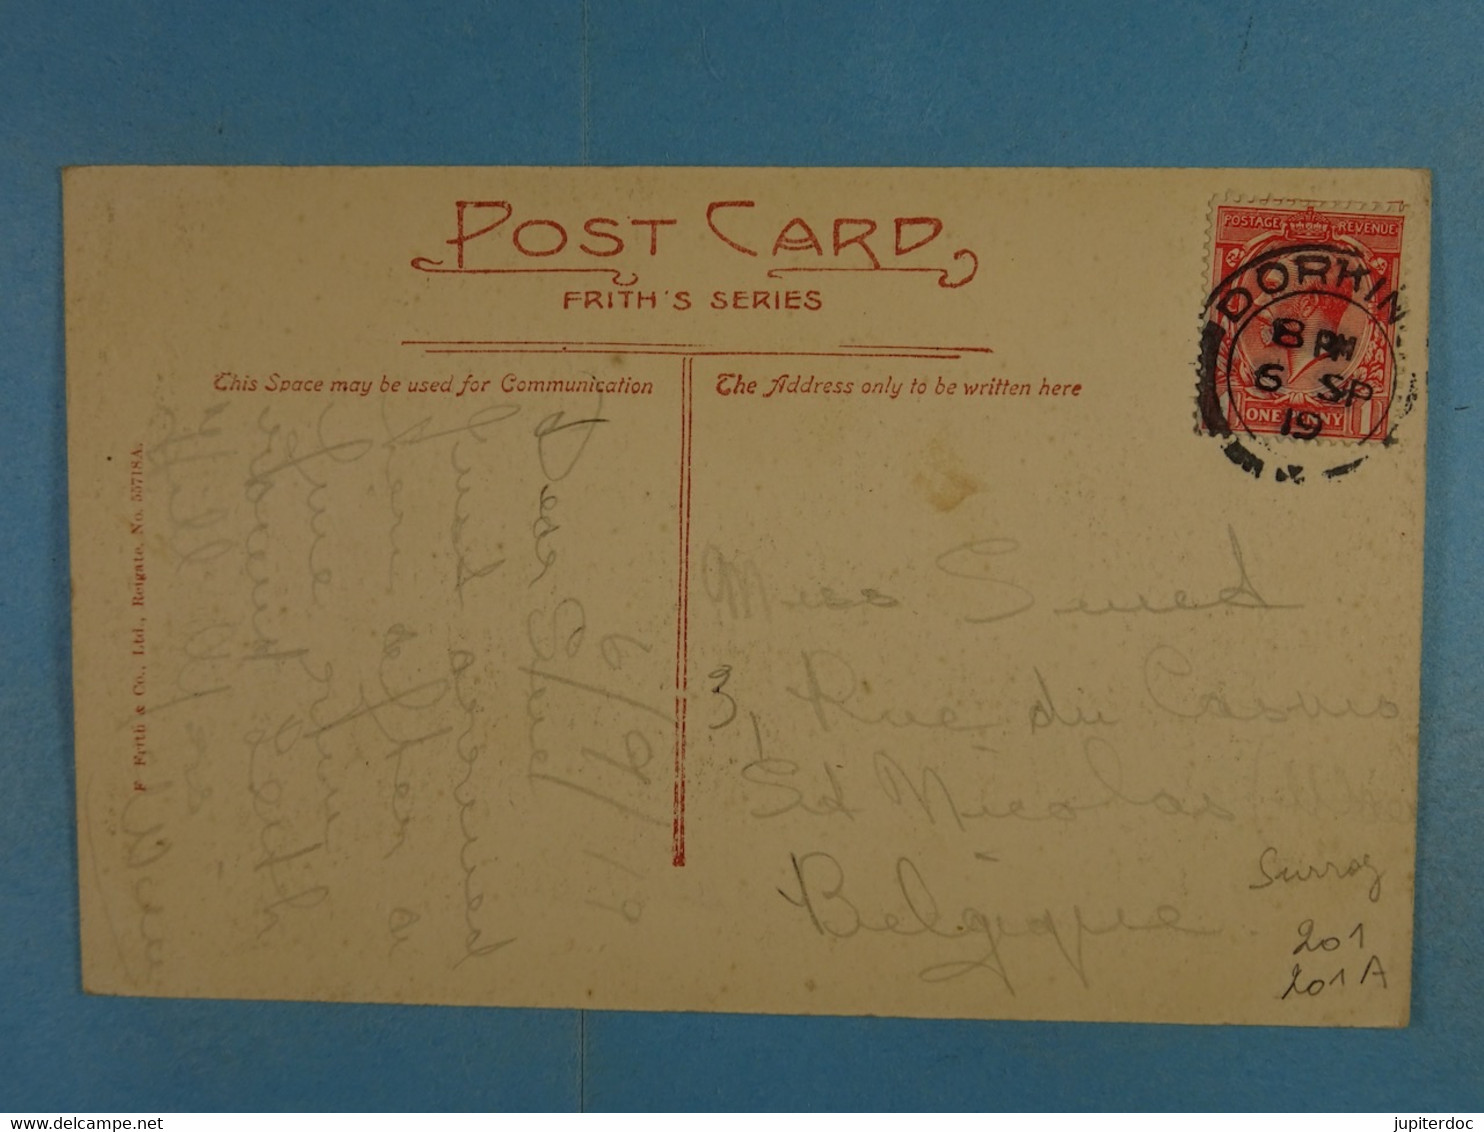 POST CARD
FRITH'S SERIES
This Space may be used for Communication
The Address only to be written here
POSTAGE REVENUE
ONE PENNY 1
DORKIN
8 PM
6 SP
19
F Frith & Co., Ltd., Reigate. No. 55718A.
6/9/19
Dear
Just arrived
here after a
fine
Miss
3, Rue du Casino
St Nicolas
Belgique
Surrey
201
201A
www.delcampe.net
jupiterdoc